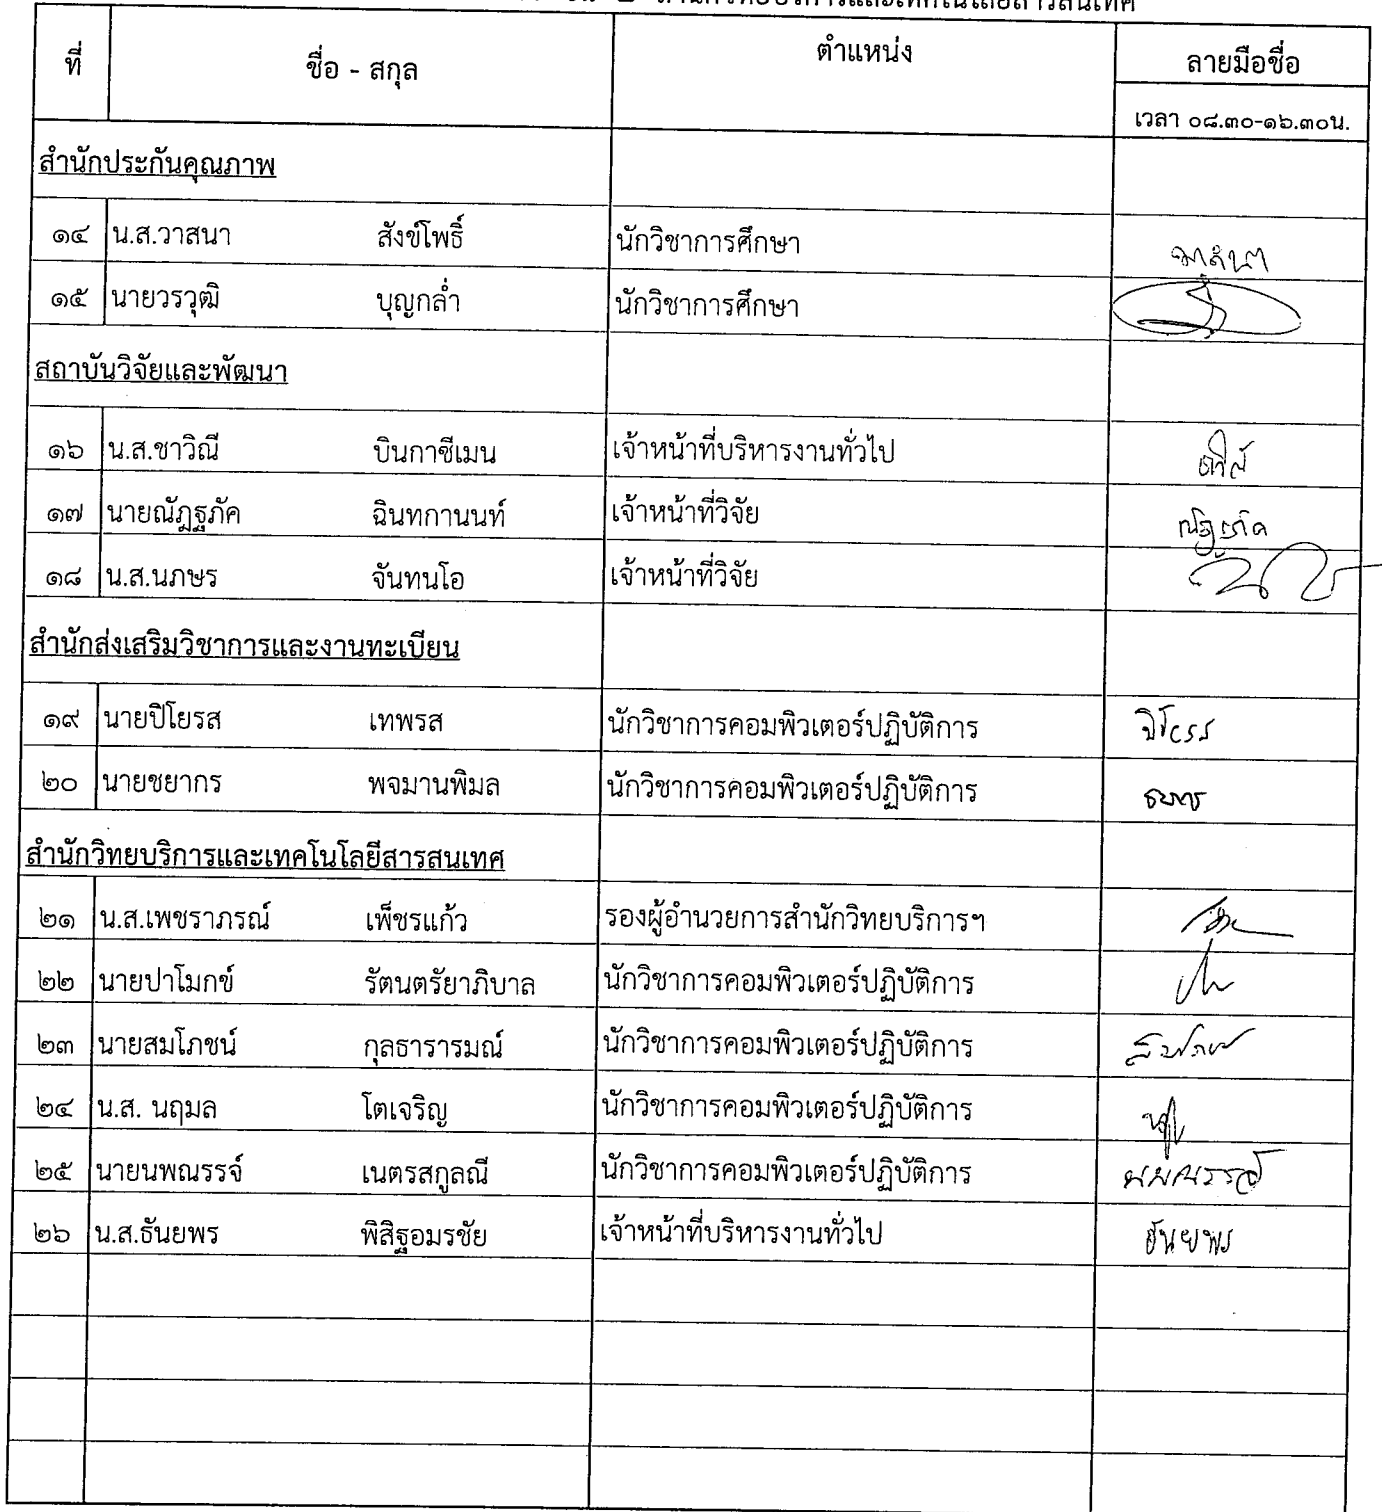 สำนักวิทยบริการและเทคโนโลยีสารสนเทศ
ที่ ชื่อ - สกุล ตำแหน่ง ลายมือชื่อ
เวลา ๐๘.๓๐-๑๖.๓๐น.
สำนักประกันคุณภาพ
๑๔ น.ส.วาสนา สังข์โพธิ์ นักวิชาการศึกษา วาสนา
๑๕ นายวรวุฒิ บุญกล่ำ นักวิชาการศึกษา
สถาบันวิจัยและพัฒนา
๑๖ น.ส.ชาวิณี บินกาซีเมน เจ้าหน้าที่บริหารงานทั่วไป
๑๗ นายณัฎฐภัค ฉินทกานนท์ เจ้าหน้าที่วิจัย ณัฎฐภัค
๑๘ น.ส.นภษร จันทนโอ เจ้าหน้าที่วิจัย
สำนักส่งเสริมวิชาการและงานทะเบียน
๑๙ นายปิโยรส เทพรส นักวิชาการคอมพิวเตอร์ปฏิบัติการ ปิโยรส
๒๐ นายชยากร พจมานพิมล นักวิชาการคอมพิวเตอร์ปฏิบัติการ ชยากร
สำนักวิทยบริการและเทคโนโลยีสารสนเทศ
๒๑ น.ส.เพชราภรณ์ เพ็ชรแก้ว รองผู้อำนวยการสำนักวิทยบริการฯ
๒๒ นายปาโมกข์ รัตนตรัยาภิบาล นักวิชาการคอมพิวเตอร์ปฏิบัติการ
๒๓ นายสมโภชน์ กุลธารารมณ์ นักวิชาการคอมพิวเตอร์ปฏิบัติการ
๒๔ น.ส. นฤมล โตเจริญ นักวิชาการคอมพิวเตอร์ปฏิบัติการ
๒๕ นายนพณรรจ์ เนตรสกูลณี นักวิชาการคอมพิวเตอร์ปฏิบัติการ นพณรรจ์
๒๖ น.ส.ธันยพร พิสิฐอมรชัย เจ้าหน้าที่บริหารงานทั่วไป ธันยพร